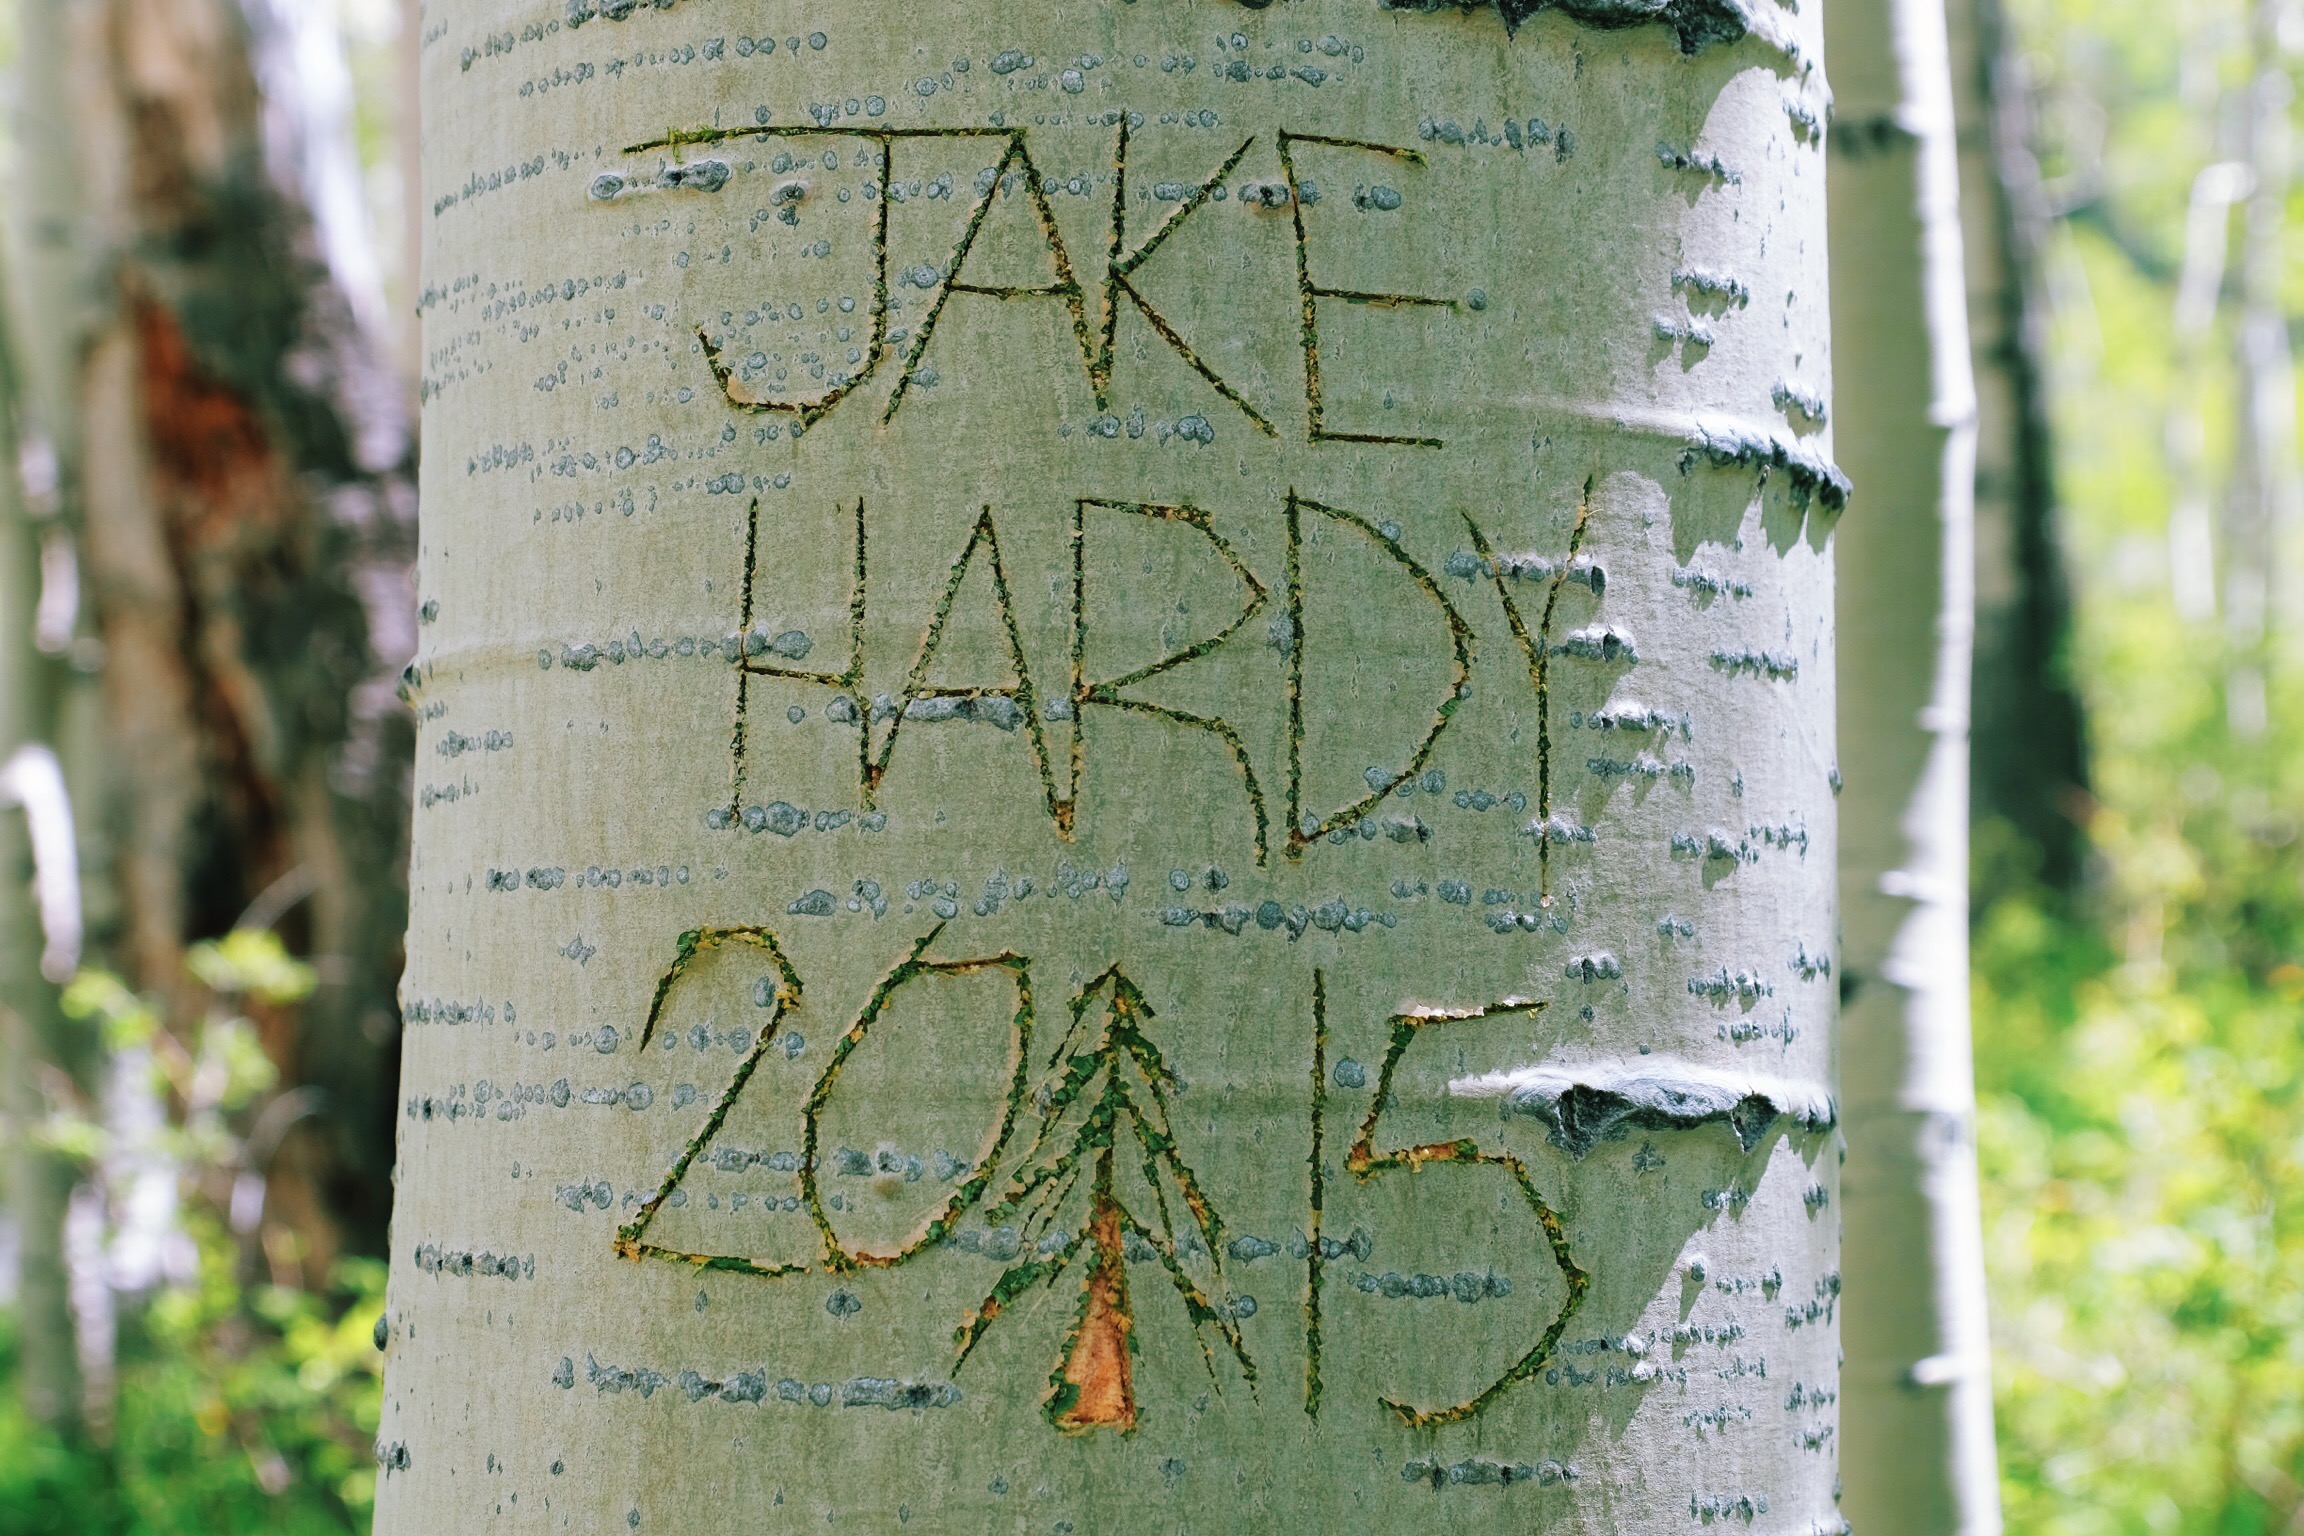 JAKE
HARDY
2015